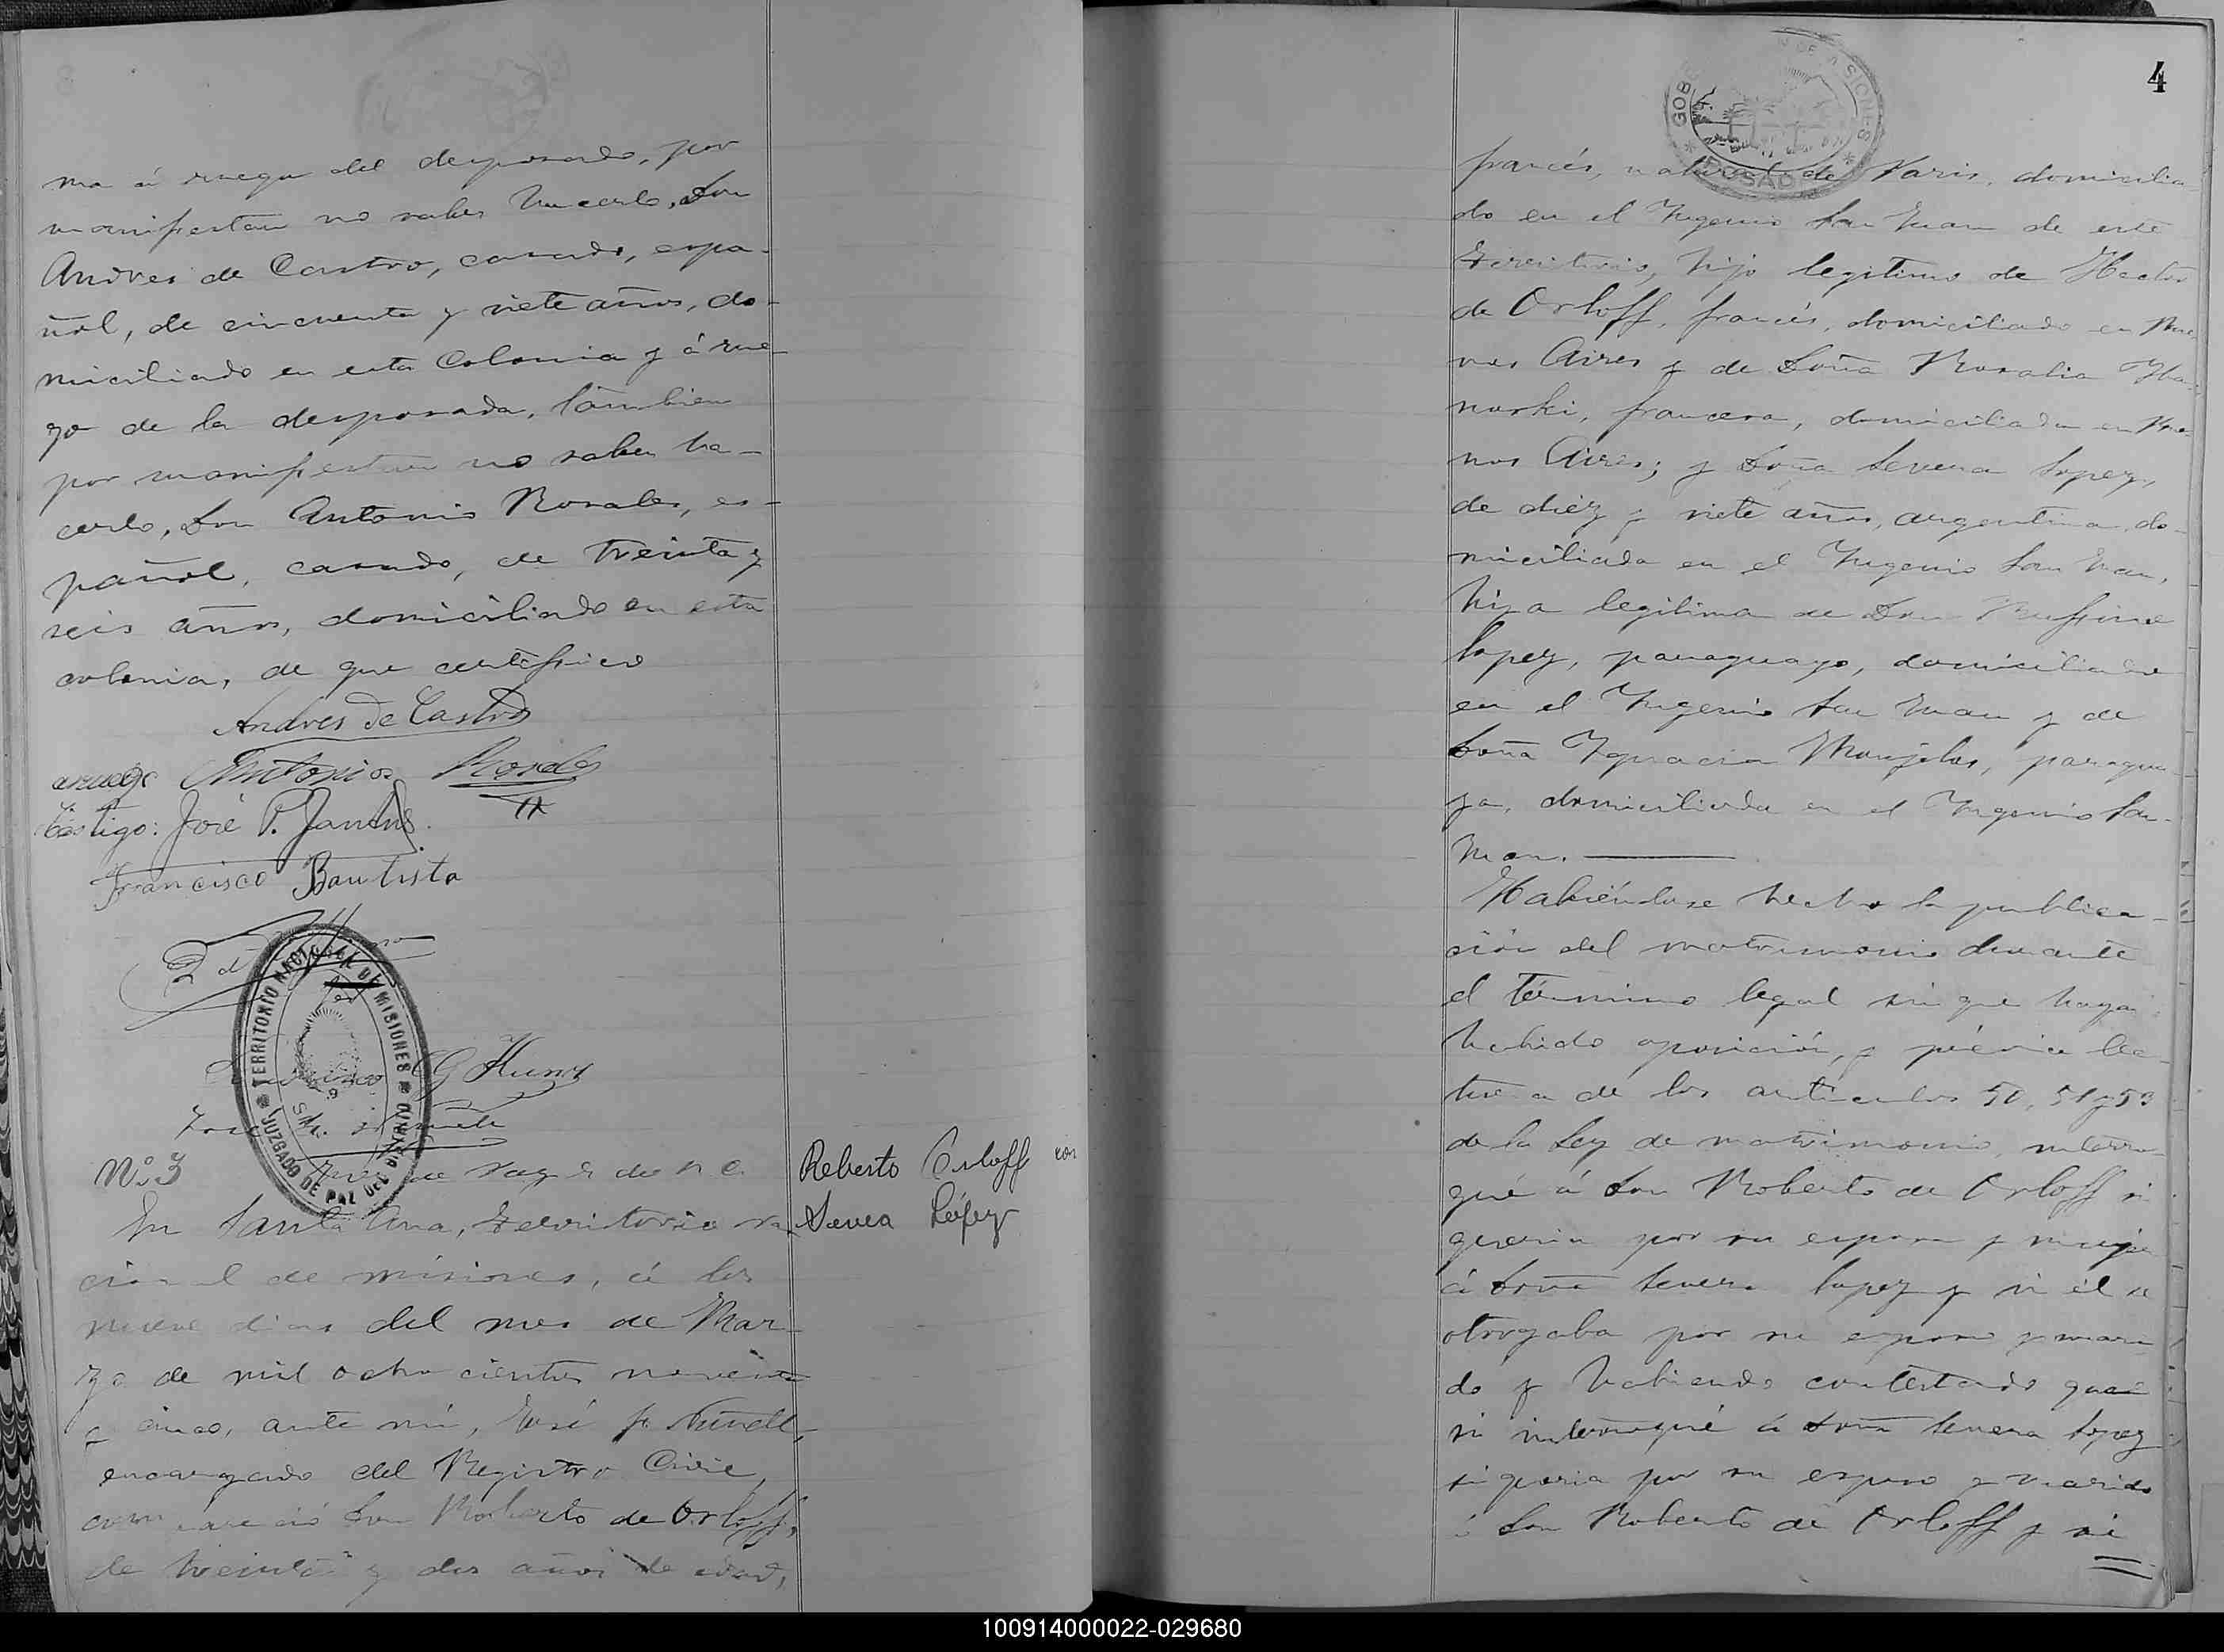 ma á ruego del desposado, por
manifestar no saber hacerlo, Don
Andres de Castro, casado, espa-
ñol, de cincuenta y siete años, do-
miciliado en esta Colonia y á rue-
go de la desposada, tambien
por manifestar no saber ha-
cerlo, Don Antonio Rosales, es-
pañol, casado, de treinta y
seis años, domiciliado en esta
colonia, de que certifico
Andres de Castro
aruego Antonio Rosales
testigo: José P.
Francisco Bautista
TERRITORIO NACIONAL DE MISIONES
JUZGADO DE PAZ DEL
No. 3
En Santa Ana, Territorio na
cional de misiones, á los
nueve dias del mes de Mar-
zo de mil ocho cientos noventa
y cinco, ante mí, José
encargado del Registro Civil,
compareció Don Roberto de Orloff,
de treinta y dos años de edad,
Roberto Orloff con
Severa López
4
GOB DE MISIONES
POSADAS
francés, natural de Paris, domicilia
do en el Ingenio San Juan de este
Territorio, hijo legitimo de Hector
de Orloff, francés, domiciliado en Bue
nos Aires y de Doña Rosalia
francesa, domiciliada en Bue-
nos Aires; y Doña Severa Lopez,
de diez y siete años, argentina, do-
miciliada en el Ingenio San Juan,
hija legitima de Don Ruffino
Lopez, paraguayo, domiciliado
en el Ingenio San Juan y de
Doña Ignacia Monjelos, paragua-
ya, domiciliada en el Ingenio San
Juan.
Habiéndose hecho la publica-
ción del matrimonio durante
el término legal sin que haya
habido oposición, y prévia lec-
tura de los articulos 50, 51 y 53
de la Ley de matrimonio, interro-
gué á Don Roberto de Orloff si
queria por su esposa y mujer
á Doña Severa Lopez y si él se
otorgaba por su esposo y mari
do y habiendo contestado que
si interrogué á Doña Severa Lopez
si queria por su esposo y marido
á Don Roberto de Orloff y si
100914000022-029680